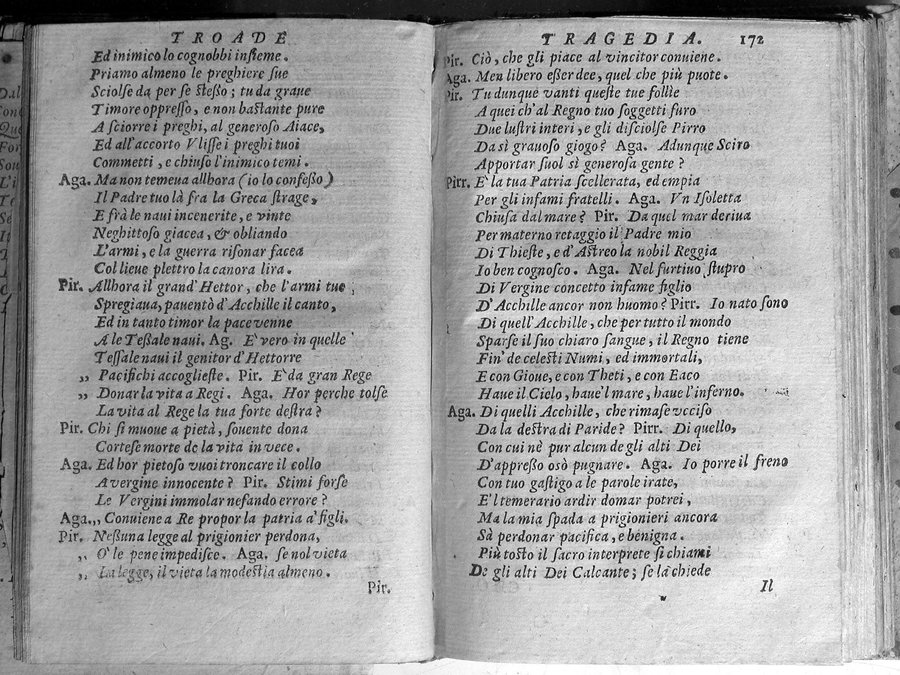 TROADE
Ed inimico lo cognobbi insieme.
Priamo almeno le preghiere sue
Sciolse da per se stesso; tu da graue
Timore oppresso, e non bastante pure
A sciorre i preghi, al generoso Aiace,
Ed all'accorto Vlisse i preghi tuoi
Commetti, e chiuso l'inimico temi.
Aga. Ma non temeua allhora (io lo confesso)
Il Padre tuo là fra la Greca strage,
E frà le naui incenerite, e vinte
Neghittoso giacea, & obliando
L'armi, e la guerra risonar facea
Col lieue plettro la canora lira.
Pir. Allhora il grand'Hettor, che l'armi tue
Spregiaua, pauentò d'Acchille il canto,
Ed in tanto timor la pace venne
A le Tessale naui. Ag. E' vero in quelle
Tessale naui il genitor d'Hettorre
„ Pacifichi accoglieste. Pir. E' da gran Rege
„ Donar la vita a Regi. Aga. Hor perche tolse
La vita al Rege la tua forte destra?
Pir. Chi si muoue a pietà, souente dona
Cortese morte de la vita in vece.
Aga. Ed hor pietoso vuoi troncare il collo
A vergine innocente? Pir. Stimi forse
Le Vergini immolar nefando errore?
Aga. „ Conuiene a Re propor la patria a' figli.
Pir. Nessuna legge al prigionier perdona,
„ O' le pene impedisce. Aga. se nol vieta
„ La legge, il vieta la modestia almeno.
Pir.
TRAGEDIA. 172
Pir. Ciò, che gli piace al vincitor conuiene.
Aga. Men libero esser dee, quel che più puote.
Pir. Tu dunque vanti queste tue follie
A quei ch'al Regno tuo soggetti furo
Due lustri interi, e gli disciolse Pirro
Da sì grauoso giogo? Aga. Adunque Sciro
Apportar suol sì generosa gente?
Pirr. E' la tua Patria scellerata, ed empia
Per gli infami fratelli. Aga. Vn Isoletta
Chiusa dal mare? Pir. Da quel mar deriua
Per materno retaggio il Padre mio
Di Thieste, e d'Astreo la nobil Reggia
Io ben cognosco. Aga. Nel furtiuo stupro
Di Vergine concetto infame figlio
D'Acchille ancor non huomo? Pirr. Io nato sono
Di quell'Acchille, che per tutto il mondo
Sparse il suo chiaro sangue, il Regno tiene
Fin' de celesti Numi, ed immortali,
E con Gioue, e con Theti, e con Eaco
Haue il Cielo, haue'l mare, haue l'inferno.
Aga. Di quelli Acchille, che rimase vcciso
Da la destra di Paride? Pirr. Di quello,
Con cui nè pur alcun de gli alti Dei
D'appresso osò pugnare. Aga. Io porre il freno
Con tuo gastigo a le parole irate,
E'l temerario ardir domar potrei,
Ma la mia spada a prigionieri ancora
Sà perdonar pacifica, e benigna.
Più tosto il sacro interprete si chiami
De gli alti Dei Calcante; se la chiede
Il